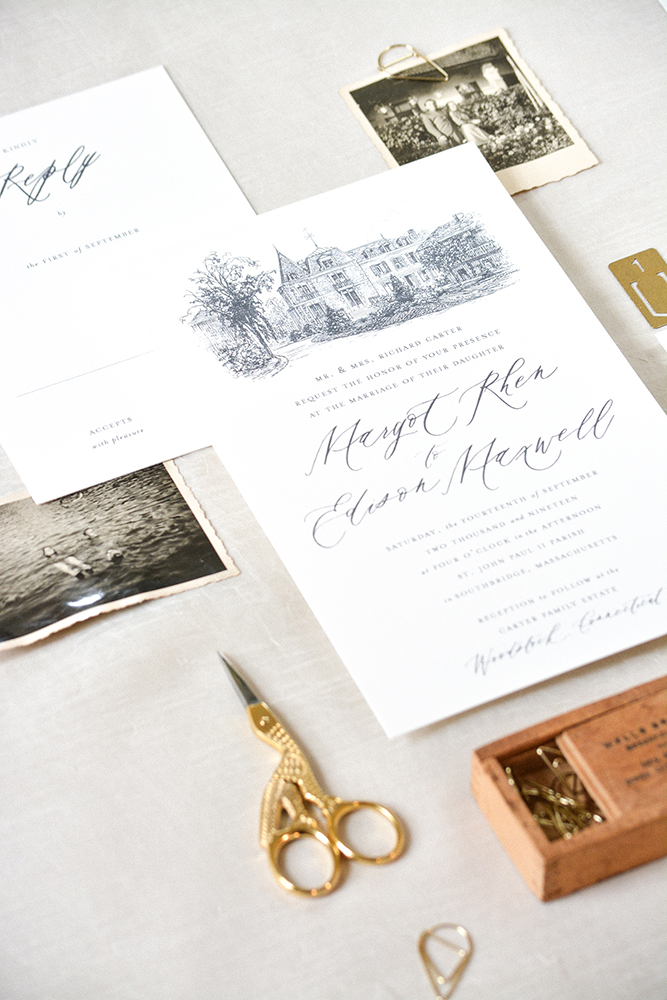 KINDLY
Reply
by
the FIRST of SEPTEMBER
ACCEPTS
with pleasure
MR. & MRS. RICHARD CARTER
REQUEST THE HONOR OF YOUR PRESENCE
AT THE MARRIAGE OF THEIR DAUGHTER
Margot Rhen
to
Edison Maxwell
SATURDAY, the FOURTEENTH of SEPTEMBER
TWO THOUSAND and NINETEEN
at FOUR O'CLOCK in the AFTERNOON
ST. JOHN PAUL II PARISH
in SOUTHBRIDGE, MASSACHUSETTS
RECEPTION to FOLLOW at the
CARTER FAMILY ESTATE
Woodstock, Connecticut
1